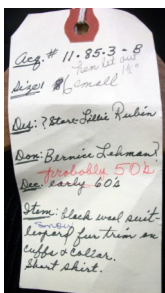 Acq. # 11-85-3-B
hem let out 1½"
Size: 6 small
Des: ? Store Lillie Rubin
Don: Bernice Lehman?
probably 50's
Dec: early 60's
Item: black wool suit
leopard fur trim on
cuffs & collar.
Short skirt.